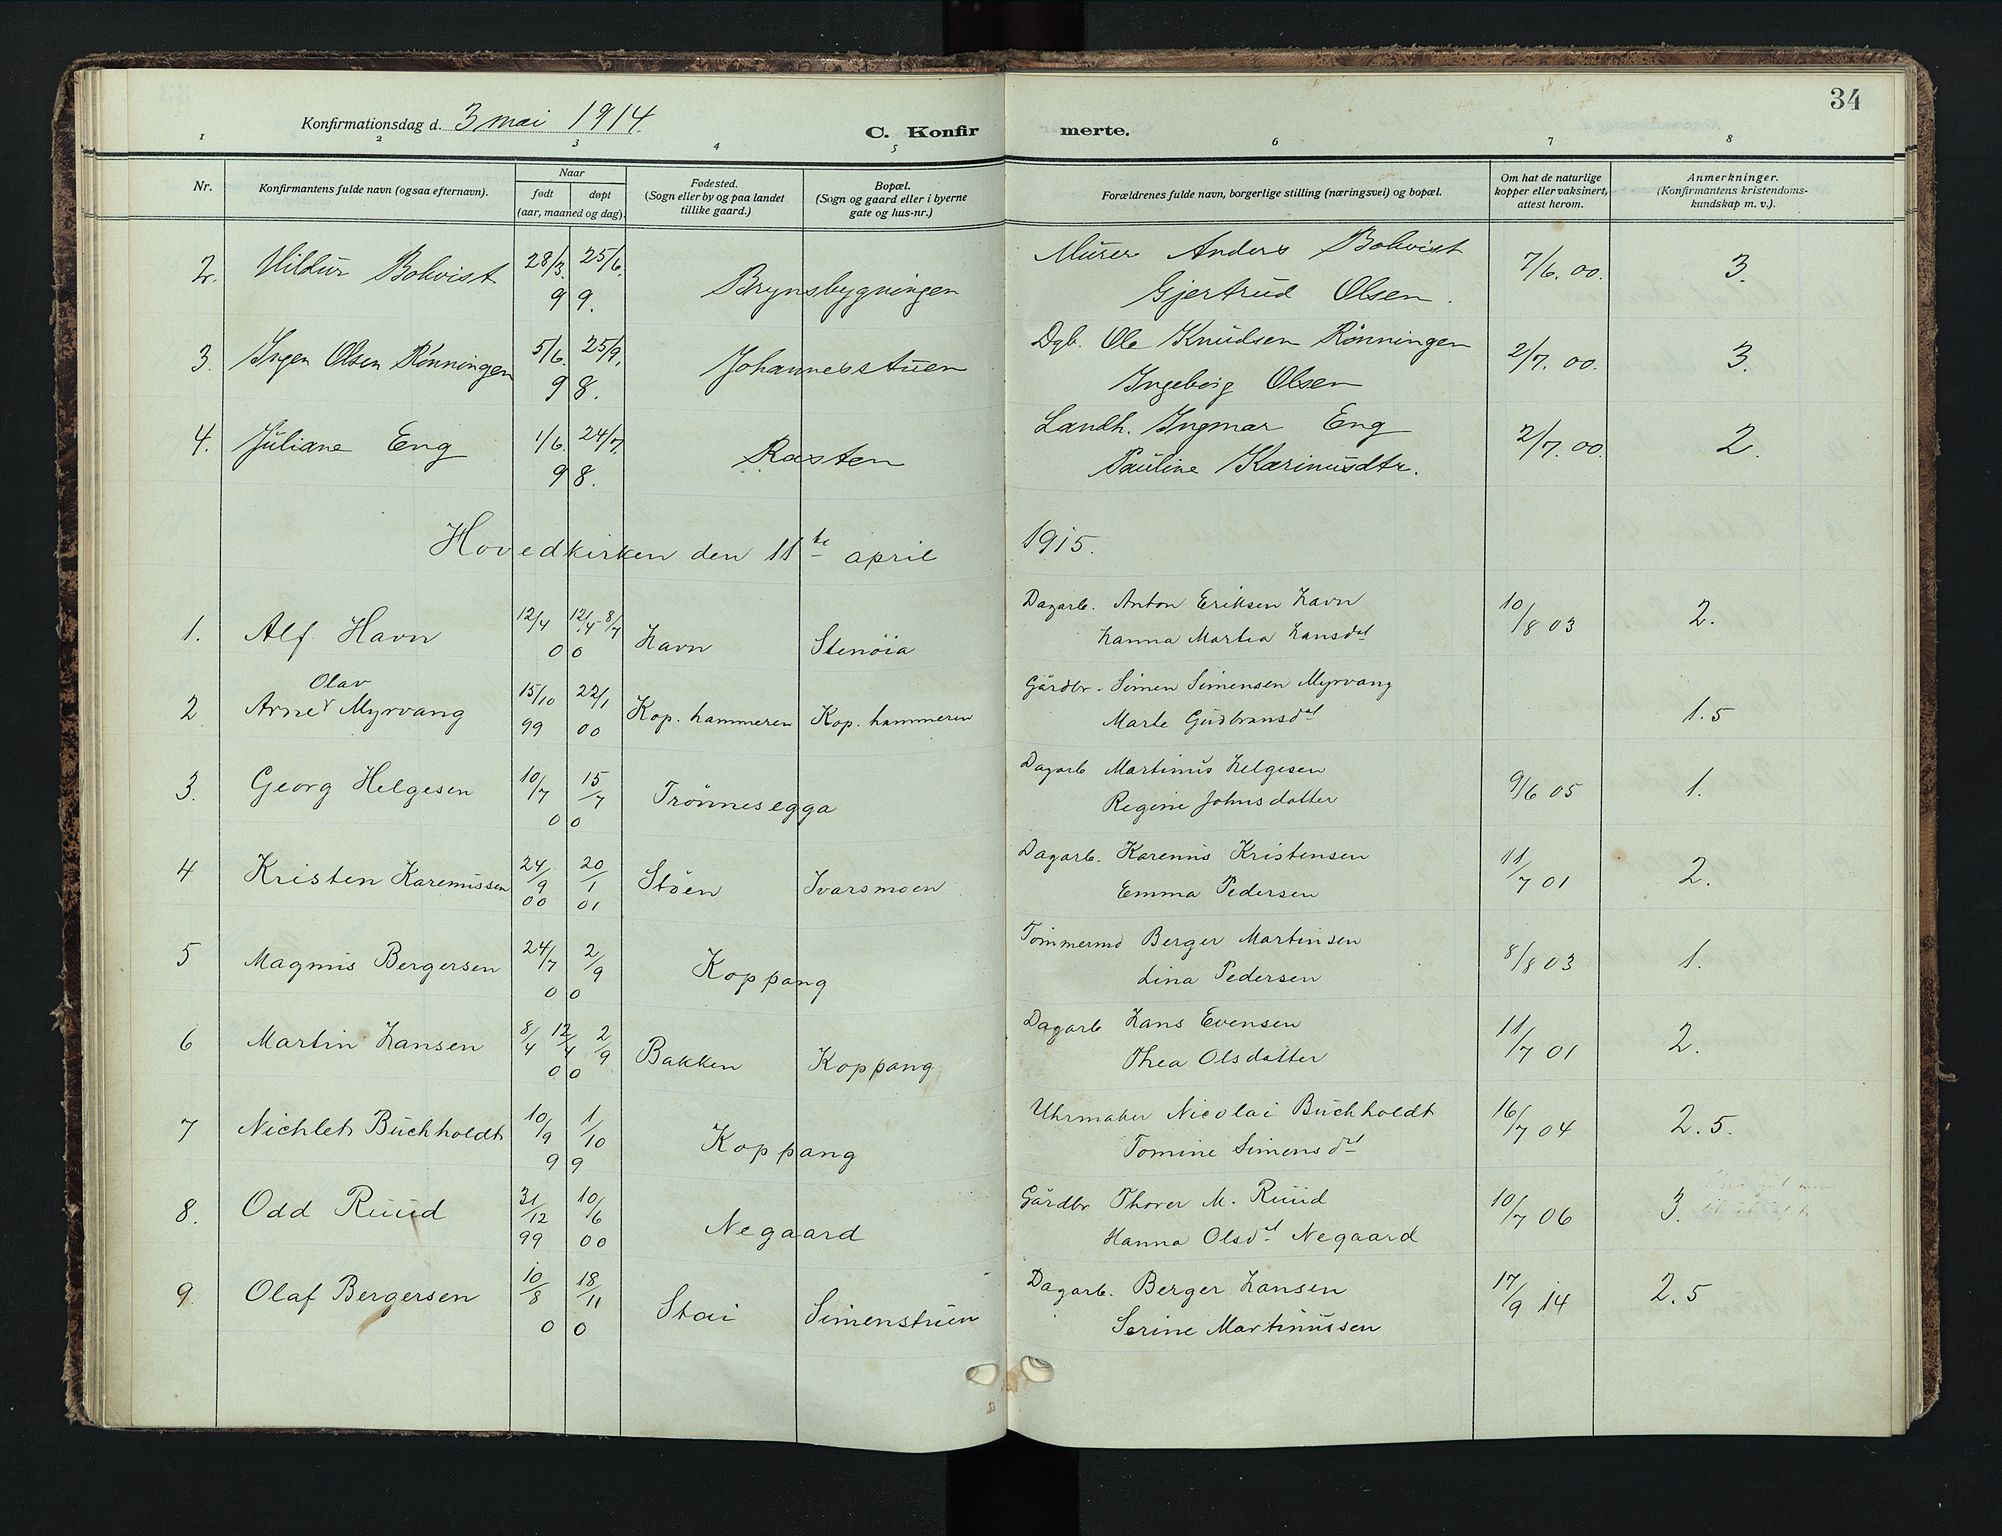 34
Konfirmationsdag d. 3 mai 1914. C. Konfirmerte.
1 2 3 4 5 6 7 8
Nr. Konfirmantens fulde navn (ogsaa efternavn). Naar født døpt (aar, maaned og dag). Fødested. (Sogn eller by og paa landet tillike gaard.) Bopæl. (Sogn og gaard eller i byerne gate og hus-nr.) Forældrenes fulde navn, borgerlige stilling (næringsvei) og bopæl. Om hat de naturlige kopper eller vaksinert, attest herom. Anmerkninger. (Konfirmantens kristendomskundskap m. v.).
2. Hildur Bokvist 28/3. 99 25/6. 99. Brynsbygningen Murer Anders Bokvist 7/6. 00. 3.
Gjertrud Olsen.
3. Ingen Olsen Rønningen 5/6. 98 25/9. 98. Johannesstuen Dgb. Ole Knudsen Rønningen 2/7. 00. 3.
Ingeborg Olsen
4. Juliane Eng 1/6. 98 24/7. 98. Rasten Landh. Ingmar Eng 2/7. 00. 2.
Pauline Karinusdtr.
Hovedkirken den 11te april 1915.
1. Alf Havn 12/4 00 12/4 - 8/7 00 Havn Stenøia Dagarb. Anton Eriksen Havn 10/8 03 2.
Hanna Martea Hansdat
2 Arne Olav Myrvang 15/10 99 22/1 00 Kop. hammeren Kop. hammeren Gårdbr. Simen Simensen Myrvang 1.5
Marte Gudbransdat
3. Georg Helgesen 10/7 00 15/7 00 Trønnesegga Dagarb Martinus Helgesen 9/6 05 1.
Regine Johnsdatter
4 Kristen Karenussen 24/9 00 20/1 01 Støen Ivarsmoen Dagarb. Karenus Kristensen 11/7 01 2.
Emma Pedersen
5 Magnus Bergersen 24/7 00 2/9 00 Koppang Tømmermd Berger Martinsen 8/8 03 1.
Lina Pedersen
6 Martin Hansen 8/4 00 12/4 2/9 00 Bakken Koppang Dagarb Hans Evensen 11/7 01 2.
Thea Olsdatter
7 Nichlets Buchholdt 10/9 99 1/10 99 Koppang Uhrmaker Nicolai Buchholdt 16/7 04 2.5.
Tomine Simensdt
8. Odd Ruud 31/12 99 10/6 00 Negaard Gårdbr Thorer M. Ruud 10/7 06 3.
Hanna Olsdat Negaard
9. Olaf Bergersen 10/8 00 18/11 00 Stai Simenstuen Dagarb. Berger Hansen 17/9 14 2.5
Serine Martinussen